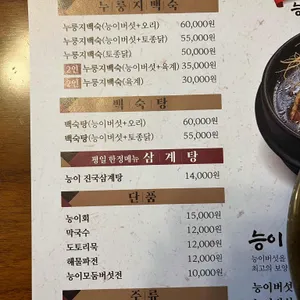 누룽지백숙
누룽지백숙(능이버섯+오리) 60,000원
누룽지백숙(능이버섯+토종닭) 55,000원
누룽지백숙(토종닭) 50,000원
2인 누룽지백숙(능이버섯+육계) 35,000원
2인 누룽지백숙(육계) 30,000원
백숙탕
백숙탕(능이버섯+오리) 60,000원
백숙탕(능이버섯+토종닭) 55,000원
평일 한정메뉴 삼계탕
능이 진국삼계탕 14,000원
단품
능이회 15,000원
막국수 12,000원
도토리묵 12,000원
해물파전 12,000원
능이모둠버섯전 10,000원
주류
능이
능이버섯을
최고의 보양
능이버섯